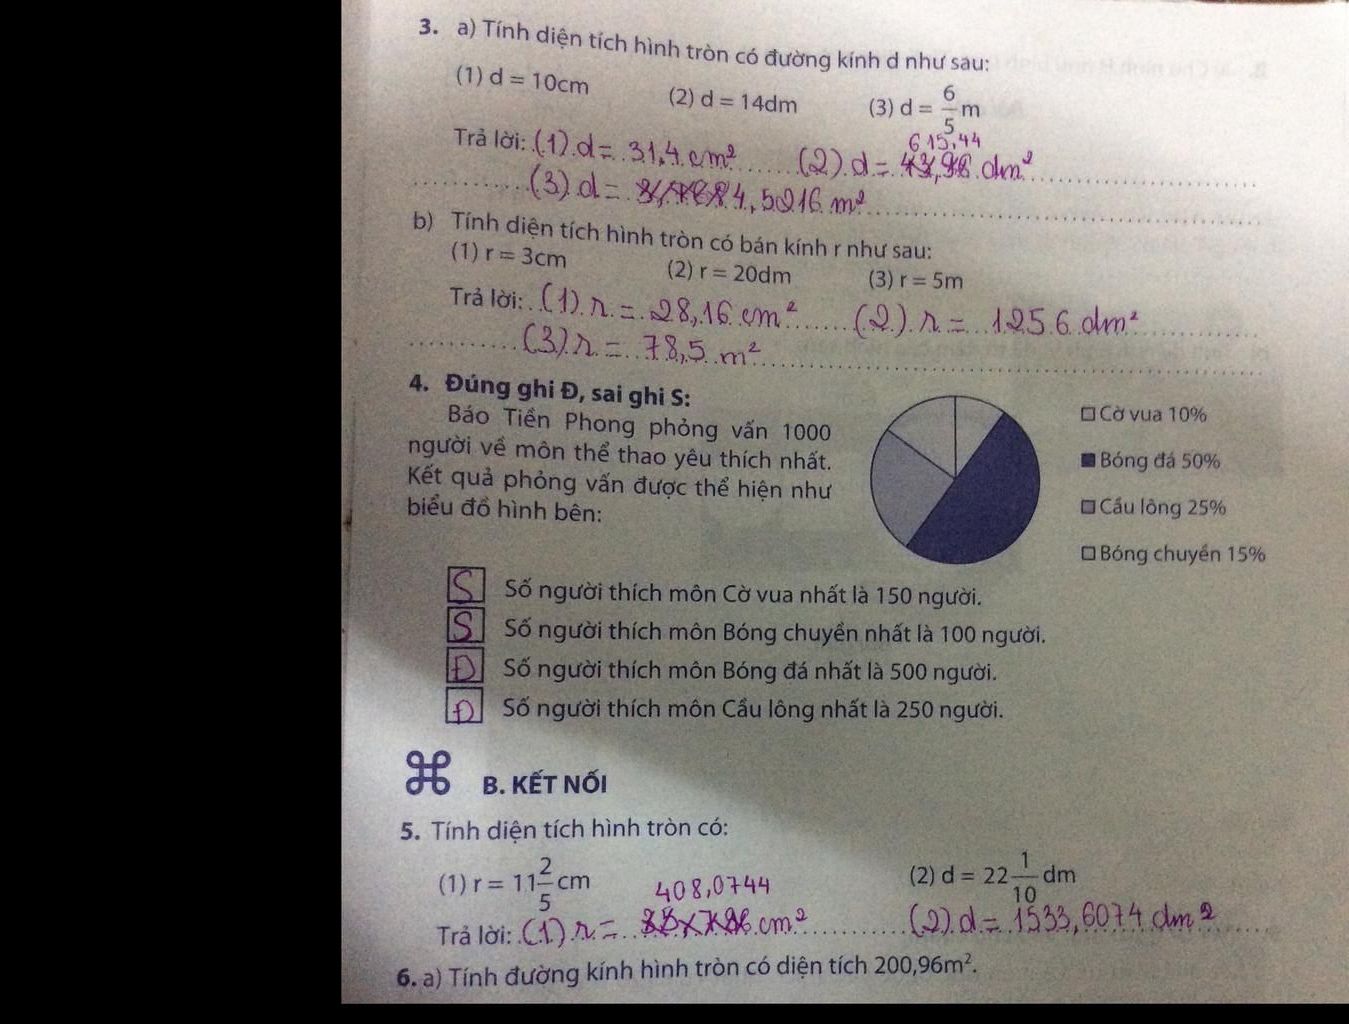 3. a) Tính diện tích hình tròn có đường kính d như sau:
(1) d = 10cm (2) d = 14dm (3) d = 6/5 m
615,44
Trả lời: (1) d = 31,4 cm² (2) d = dm²
(3) d = 4,5216 m²
b) Tính diện tích hình tròn có bán kính r như sau:
(1) r = 3cm (2) r = 20dm (3) r = 5m
Trả lời: (1) r = 28,16 cm² (2) r = 1256 dm²
(3) r = 78,5 m²
4. Đúng ghi Đ, sai ghi S:
Báo Tiền Phong phỏng vấn 1000
người về môn thể thao yêu thích nhất.
Kết quả phỏng vấn được thể hiện như
biểu đồ hình bên:
Cờ vua 10%
Bóng đá 50%
Cầu lông 25%
Bóng chuyền 15%
S Số người thích môn Cờ vua nhất là 150 người.
S Số người thích môn Bóng chuyền nhất là 100 người.
Đ Số người thích môn Bóng đá nhất là 500 người.
Đ Số người thích môn Cầu lông nhất là 250 người.
B. KẾT NỐI
5. Tính diện tích hình tròn có:
(1) r = 11 2/5 cm (2) d = 22 1/10 dm
408,0744
Trả lời: (1) r = cm² (2) d = 1533,6074 dm²
6. a) Tính đường kính hình tròn có diện tích 200,96m².